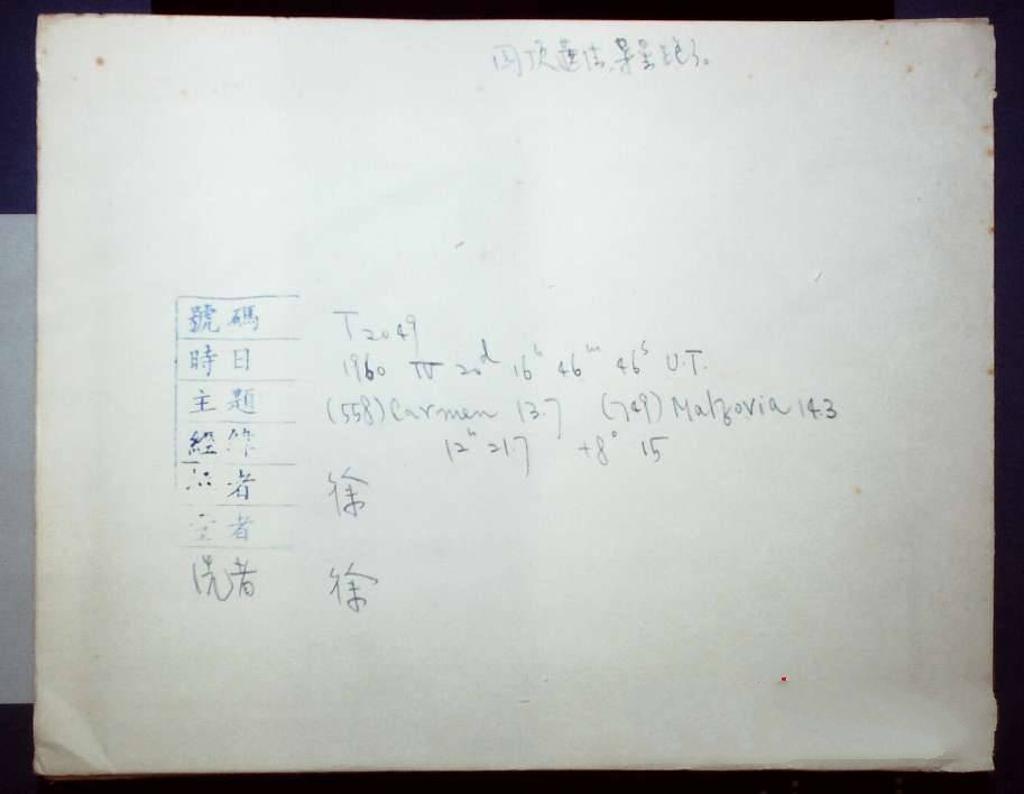 圆顶
號碼 T2049
時日 1960 IV 20d 16h 46m 46s U.T.
主題 (558) Carmen 13.7 (749) Malzovia 14.3
經緯 12h 217 +8° 15
者 徐
者
洗者 徐